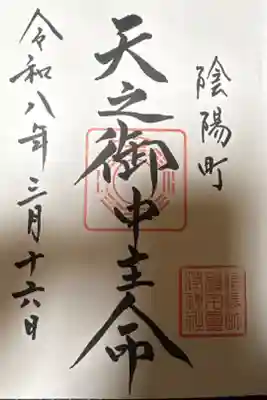 陰陽町
天之御中主命
令和八年三月十六日